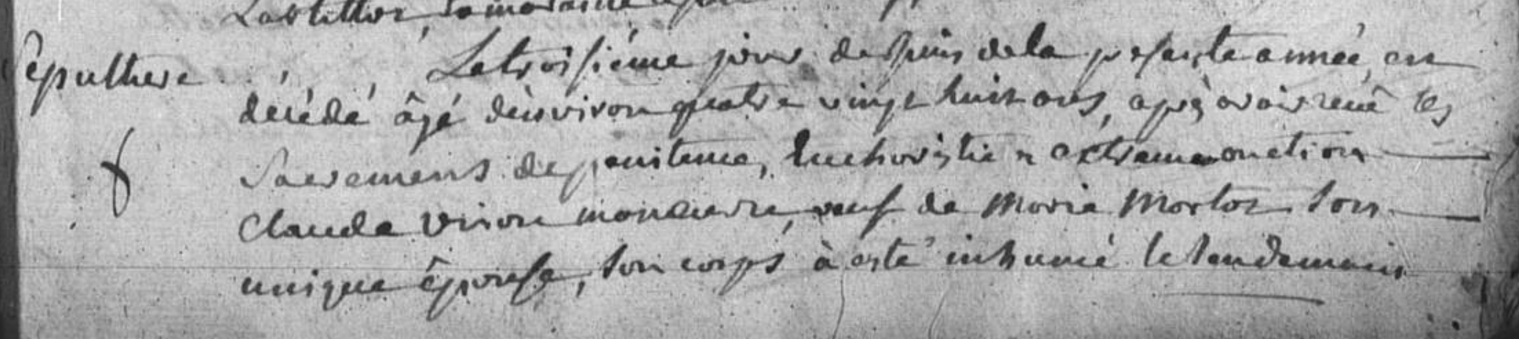 sépulthere Le troisiéme jour de Juin de la presente année, est
décédé âgé d'environ quatre vingt huit ans, après avoir reçû les
Sacremens de penitence, Euchoristie & extreme onction
Claude Viron manoeuvre, veuf de Marie son
unique épouse, son corps à esté inhumé le lendemain